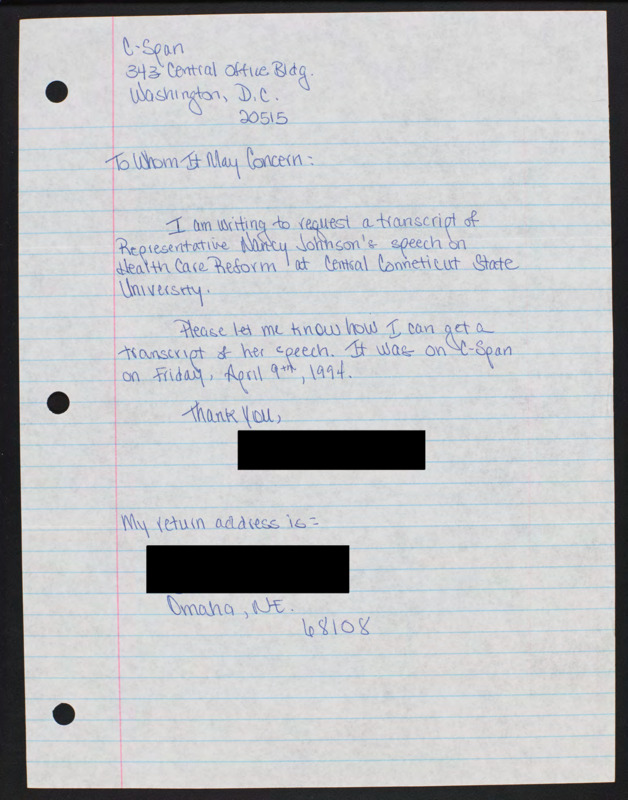 C-Span
343 Central Office Bldg.
Washington, D.C.
20515
To Whom It May Concern:
I am writing to request a transcript of
Representative Nancy Johnson's speech on
Health Care Reform at Central Conneticut State
University.
Please let me know how I can get a
transcript of her speech. It was on C-Span
on Friday, April 9th, 1994.
Thank You,
My return address is=
Omaha, NE.
68108